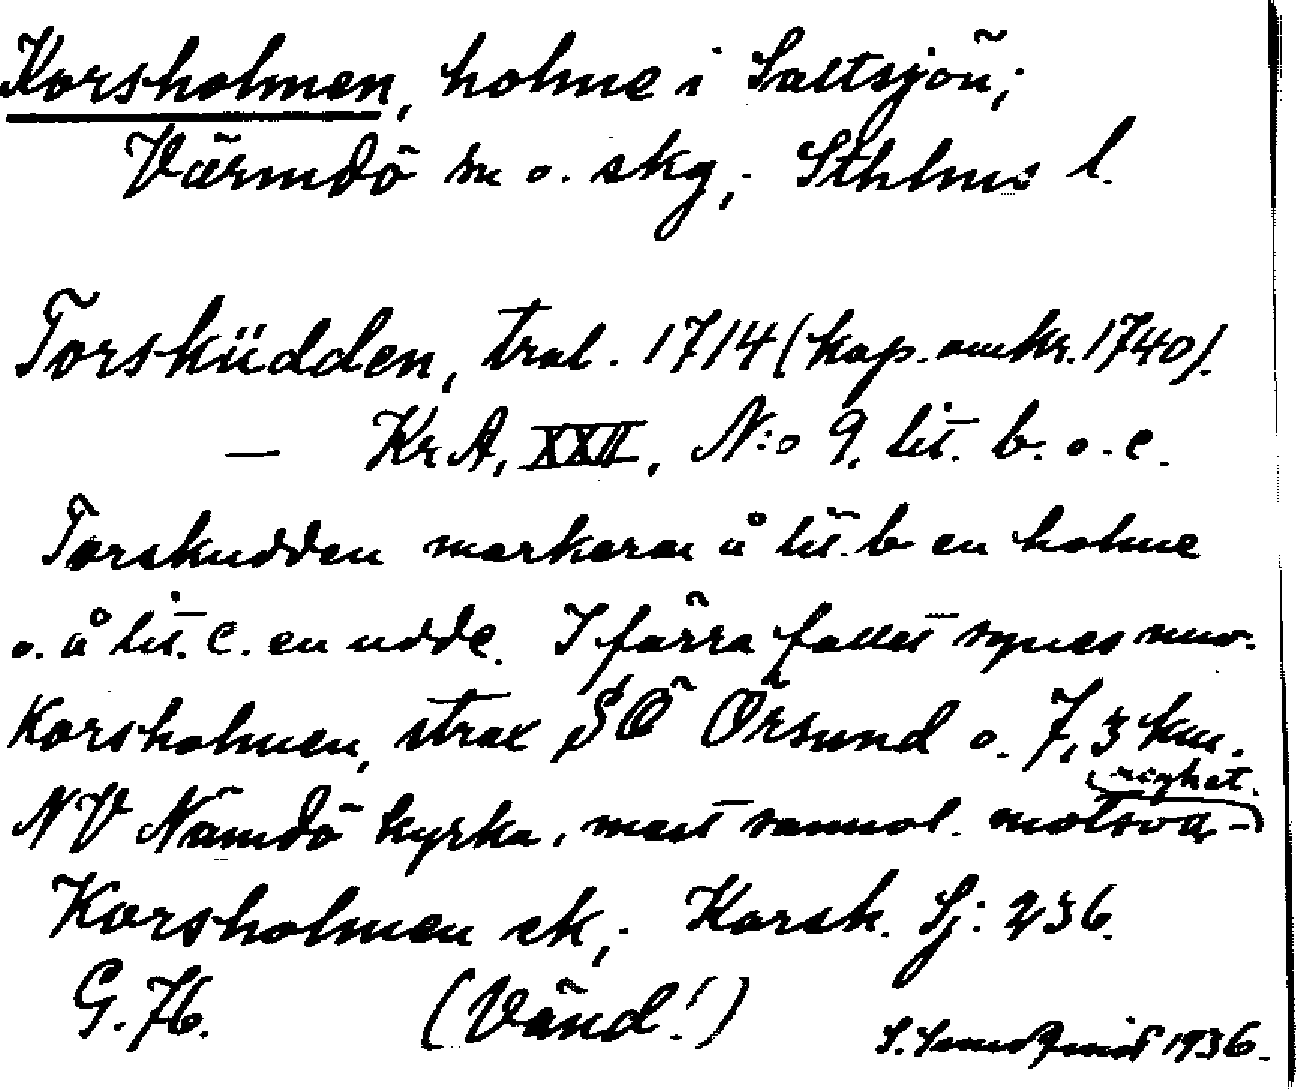 Korsholmen, holme i Saltsjön;
Värmdö sn o. skg; Sthlms l.
Torsküdden, tral. 1714 (kop. omkr. 1740).
— KrA, XXII, N:o 9, lit. b. o. c.
Torskudden markerar å lit. b en holme
o. å lit. c. en udde. I förra fallet synes nuv.
Korsholmen, strax SÖ Örsund o. 7,3 km.
NV Nämdö kyrka, mest sannol. motsva-righet.
Korsholmen ek; Korsh. Sj: 236.
G. 76. (Vänd!)
1936.